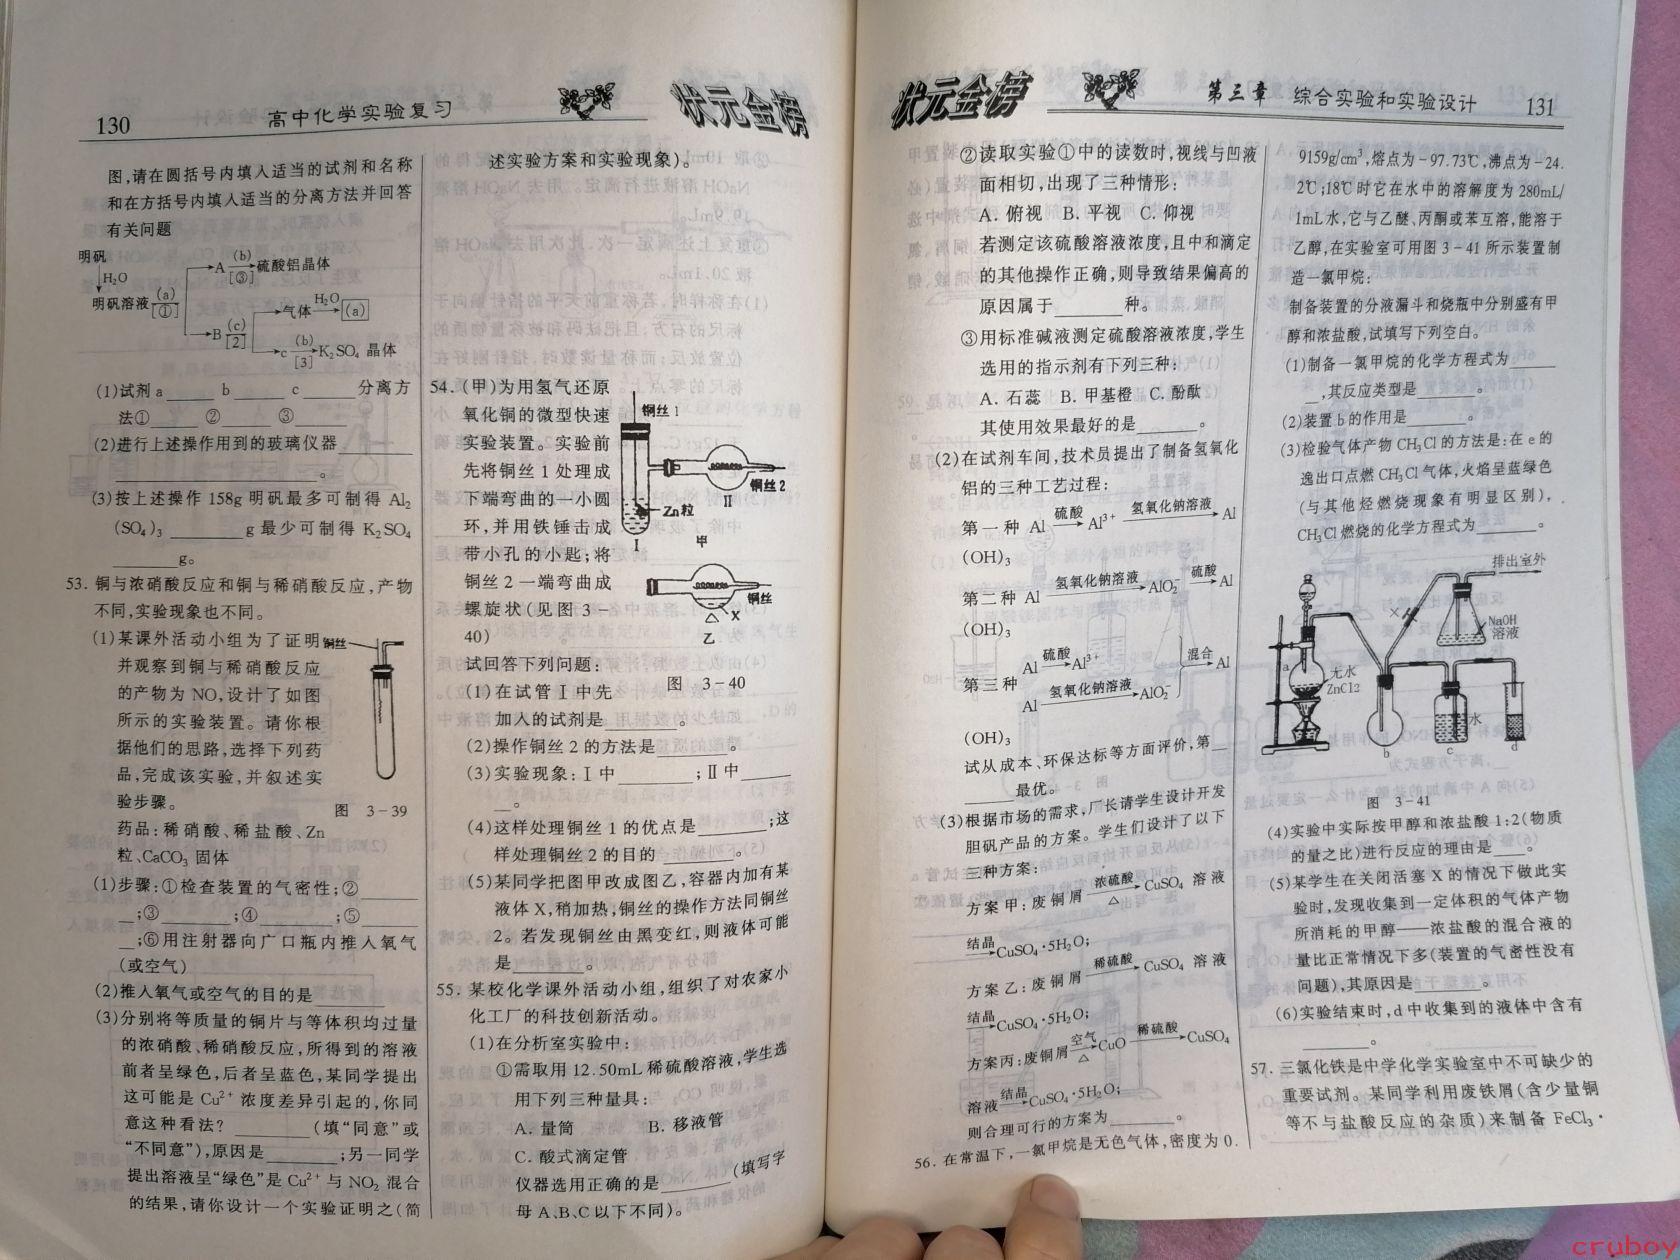 130
高中化学实验复习
状元金榜
图,请在圆括号内填入适当的试剂和名称
和在方括号内填入适当的分离方法并回答
有关问题
明矾
H₂O
明矾溶液
(a)
[①]
A
(b)
[③]
硫酸铝晶体
B
(c)
[2]
气体
H₂O
(a)
c
(b)
[3]
K₂SO₄ 晶体
(1)试剂 a____ b____ c____ 分离方
法①____ ②____ ③____
(2)进行上述操作用到的玻璃仪器____
____。
(3)按上述操作 158g 明矾最多可制得 Al₂
(SO₄)₃ ____g 最少可制得 K₂SO₄
____g。
53. 铜与浓硝酸反应和铜与稀硝酸反应,产物
不同,实验现象也不同。
(1)某课外活动小组为了证明
并观察到铜与稀硝酸反应
的产物为 NO,设计了如图
所示的实验装置。请你根
据他们的思路,选择下列药
品,完成该实验,并叙述实
验步骤。
铜丝
图 3-39
药品:稀硝酸、稀盐酸、Zn
粒、CaCO₃ 固体
(1)步骤:①检查装置的气密性;②____
__;③____;④____;⑤____
__;⑥用注射器向广口瓶内推入氧气
(或空气)
(2)推入氧气或空气的目的是____
(3)分别将等质量的铜片与等体积均过量
的浓硝酸、稀硝酸反应,所得到的溶液
前者呈绿色,后者呈蓝色,某同学提出
这可能是 Cu²⁺ 浓度差异引起的,你同
意这种看法? ____(填“同意”或
“不同意”),原因是____;另一同学
提出溶液呈“绿色”是 Cu²⁺ 与 NO₂ 混合
的结果,请你设计一个实验证明之(简
述实验方案和实验现象)。
54. (甲)为用氢气还原
氧化铜的微型快速
实验装置。实验前
先将铜丝 1 处理成
下端弯曲的一小圆
环,并用铁锤击成
带小孔的小匙;将
铜丝 2 一端弯曲成
螺旋状(见图 3-
40)
铜丝 1
铜丝 2
Zn粒
I
II
甲
铜丝
X
乙
图 3-40
试回答下列问题:
(1)在试管Ⅰ中先
加入的试剂是____。
(2)操作铜丝 2 的方法是____。
(3)实验现象:Ⅰ中____;Ⅱ中____
__。
(4)这样处理铜丝 1 的优点是____;这
样处理铜丝 2 的目的____。
(5)某同学把图甲改成图乙,容器内加有某
液体 X,稍加热,铜丝的操作方法同铜丝
2。若发现铜丝由黑变红,则液体可能
是____。
55. 某校化学课外活动小组,组织了对农家小
化工厂的科技创新活动。
(1)在分析室实验中:
①需取用 12.50mL 稀硫酸溶液,学生选
用下列三种量具:
A. 量筒 B. 移液管
C. 酸式滴定管
仪器选用正确的是____(填写字
母 A、B、C 以下不同)。
状元金榜
第三章 综合实验和实验设计
131
②读取实验①中的读数时,视线与凹液
面相切,出现了三种情形:
A. 俯视 B. 平视 C. 仰视
若测定该硫酸溶液浓度,且中和滴定
的其他操作正确,则导致结果偏高的
原因属于____种。
③用标准碱液测定硫酸溶液浓度,学生
选用的指示剂有下列三种:
A. 石蕊 B. 甲基橙 C. 酚酞
其使用效果最好的是____。
(2)在试剂车间,技术员提出了制备氢氧化
铝的三种工艺过程:
第一种 Al 硫酸→ Al³⁺ 氢氧化钠溶液→ Al
(OH)₃
第二种 Al 氢氧化钠溶液→ AlO₂⁻ 硫酸→ Al
(OH)₃
第三种
Al 硫酸→ Al³⁺
Al 氢氧化钠溶液→ AlO₂⁻
混合→ Al
(OH)₃
试从成本、环保达标等方面评价,第__
____最优。
(3)根据市场的需求,厂长请学生设计开发
胆矾产品的方案。学生们设计了以下
三种方案:
方案甲:废铜屑 浓硫酸△→ CuSO₄ 溶液
结晶→ CuSO₄·5H₂O;
方案乙:废铜屑 稀硫酸→ CuSO₄ 溶液
结晶→ CuSO₄·5H₂O;
方案丙:废铜屑 空气△→ CuO 稀硫酸→ CuSO₄
溶液 结晶→ CuSO₄·5H₂O;
则合理可行的方案为____。
56. 在常温下,一氯甲烷是无色气体,密度为 0.
9159g/cm³,熔点为-97.73℃,沸点为-24.
2℃;18℃时它在水中的溶解度为 280mL/
1mL水,它与乙醚、丙酮或苯互溶,能溶于
乙醇,在实验室可用图 3-41 所示装置制
造一氯甲烷:
制备装置的分液漏斗和烧瓶中分别盛有甲
醇和浓盐酸,试填写下列空白。
(1)制备一氯甲烷的化学方程式为____
__,其反应类型是____。
(2)装置 b 的作用是____。
(3)检验气体产物 CH₃Cl 的方法是:在 e 的
逸出口点燃 CH₃Cl 气体,火焰呈蓝绿色
(与其他烃燃烧现象有明显区别),
CH₃Cl 燃烧的化学方程式为____。
排出室外
NaOH
溶液
X
a
无水
ZnCl2
水
b
c
d
图 3-41
(4)实验中实际按甲醇和浓盐酸 1:2(物质
的量之比)进行反应的理由是____。
(5)某学生在关闭活塞 X 的情况下做此实
验时,发现收集到一定体积的气体产物
所消耗的甲醇——浓盐酸的混合液的
量比正常情况下多(装置的气密性没有
问题),其原因是____。
(6)实验结束时,d 中收集到的液体中含有
____。
57. 三氯化铁是中学化学实验室中不可缺少的
重要试剂。某同学利用废铁屑(含少量铜
等不与盐酸反应的杂质)来制备 FeCl₃·
cruboy